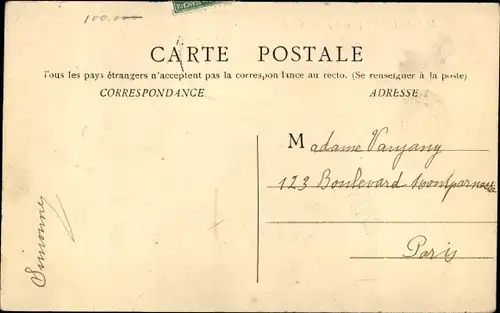 100.000
CARTE POSTALE
Tous les pays étrangers n'acceptent pas la correspondance au recto. (Se renseigner à la poste)
CORRESPONDANCE ADRESSE
Madame Vanjany
123 Boulevard Montparnasse
Paris
Simonne